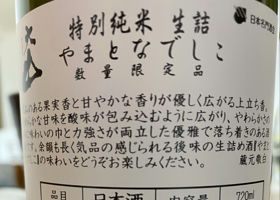 日本名門酒会
特別純米 生詰
やまとなでしこ
数量限定品
みのある果実香と甘やかな香りが優しく広がる上立ち香。
な甘味を酸味が包み込むように広がり、やわらかさの
味わいの巾と力強さが両立した優雅で落ち着きのある酒
す。余韻も長く気品の感じられる後味の生詰め酒『やま
こ』の味わいをどうぞお楽しみください。
蔵元敬白
品目 日本酒 内容量 720ml